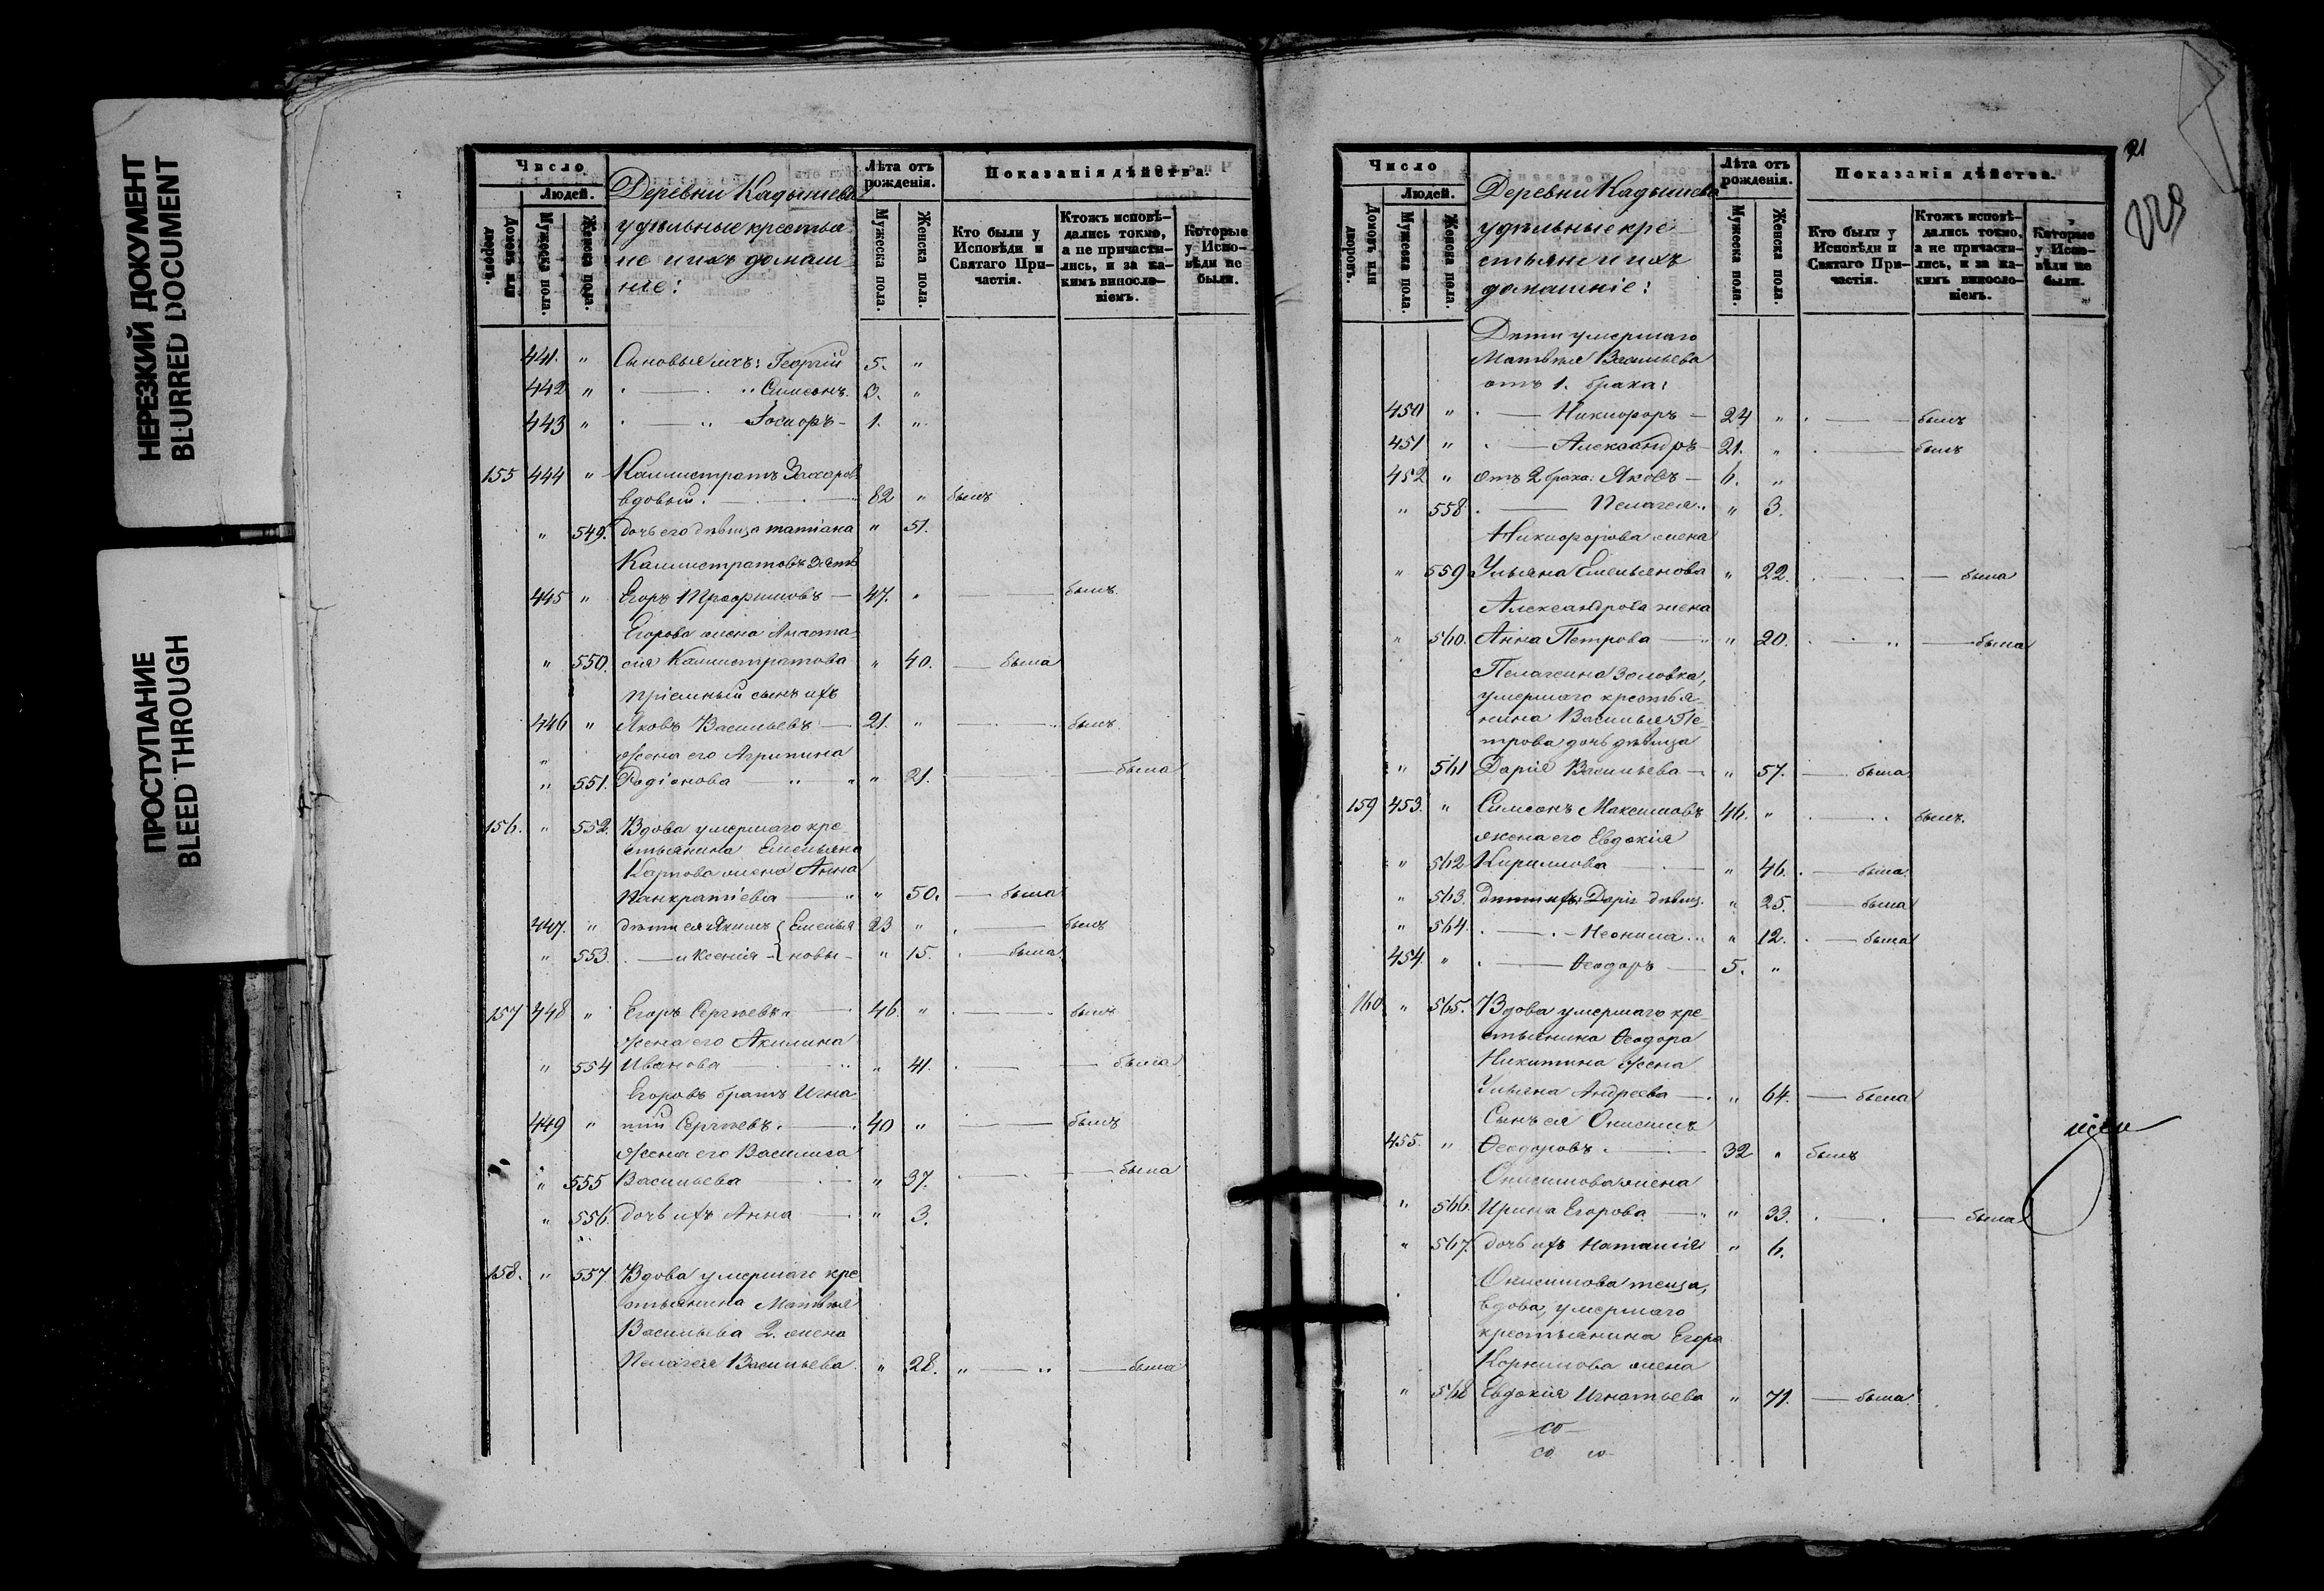 НЕРЕЗКИЙ ДОКУМЕНТ
BLURRED DOCUMENT
ПРОСТУПАНИЕ
BLEED THROUGH
Число
Людей.
Домовъ или дворовъ.
Мужеска пола.
Женска пола.
Деревни Кадышева
удѣльные крестья
не и ихъ домаш
ніе:
Лѣта отъ рожденія.
Мужеска пола.
Женска пола.
Показанія дѣйства.
Кто были у Исповѣди и Святаго Причастія.
Ктожъ исповѣдались токмо, а не причастились, и за какимъ винословіемъ.
Которые у Исповѣди не были.
441. " Сыновья ихъ: Георгій 5. "
442 " Симеонъ. 3. "
443 " 1. "
155 444 " Каллистратъ Захаровъ
вдовый. 82 " былъ
" 549. дочь его дѣвица татіана " 51.
Каллистратовъ зять
445 " Егоръ Трофимовъ — 47. " — былъ.
Егорова жена Анаста
" 550. сія Каллистратова " 40. — была
пріемный сынъ ихъ
446 " Яковъ Васильевъ — 21. " — былъ
Жена его Агрипина
" 551. Родіонова " 21. — была
156. " 552. Вдова умершаго кре
стьянина Емельяна
Карпова жена Анна
Панкратіева — " 50. — была
447. " дѣти ея Якимъ { Емелья 23 " былъ
" 553. — и Ксенія - } новы - " 15. — была
157 448 " Егоръ Сергѣевъ 46. " — былъ
Жена его Акилина
" 554 Иванова — " 41. — была
Егоровъ братъ Игна
449 " тій Сергѣевъ. 40 " — былъ
Жена его Василиса
" 555 Васильева — " 37. — была
" 556. дочь ихъ Анна — " 3.
158. " 557 Вдова умершаго кре
стьянина Матвѣя
Васильева 2. жена
Пелагея Васильева. " 28. " — была
21
Число
Людей.
Домовъ или дворовъ.
Мужеска пола.
Женска пола.
Деревни Кадышева
удѣльные кре
стьяне и ихъ
домашніе:
Лѣта отъ рожденія.
Мужеска пола.
Женска пола.
Показанія дѣйства.
Кто были у Исповѣди и Святаго Причастія.
Ктожъ исповѣдались токмо, а не причастились, и за какимъ винословіемъ.
Которые у Исповѣди не были.
Дѣти умершаго
Матвѣя Васильева
отъ 1. брака:
450 " — Никифоръ — 24 " — былъ
451 " — Александръ 21. " — былъ
452 " отъ 2 брака: Яковъ — 6. "
" 558 — Пелагея " 3.
Никифорова жена
" 559 Ульяна Емельянова " 22. — была
Александрова жена
" 560. Анна Петрова — " 20. — была
Пелагеина золовка,
умершаго крестья-
нина Василья Пе-
трова дочь дѣвица
" 561 Дарія Васильева — " 57. — была
159 453. " Симеонъ Максимовъ 46. " былъ.
жена его Евдокія
" 562 Кириллова — " 46. — была.
" 563. Дѣти ихъ: Дарія дѣвиц. " 25. — была
" 564. — Неонила " 12. — была
454. " — Ѳеодоръ — 5. "
160 " 565. Вдова умершаго кре
стьянина Ѳеодора
Никитина Жена
Ульяна Андреева — " 64. — была
Сынъ ея Онисимъ
455. " Ѳеодоровъ. — 32 " былъ
Онисимова жена
" 566. Ирина Егорова — " 33. — была
" 567. дочь ихъ Наталія " 6.
Онисимова теща,
вдова, умершаго
крестьянина Егора
Корнилова жена
" 568 Евдокія Игнатьева " 71. — была.